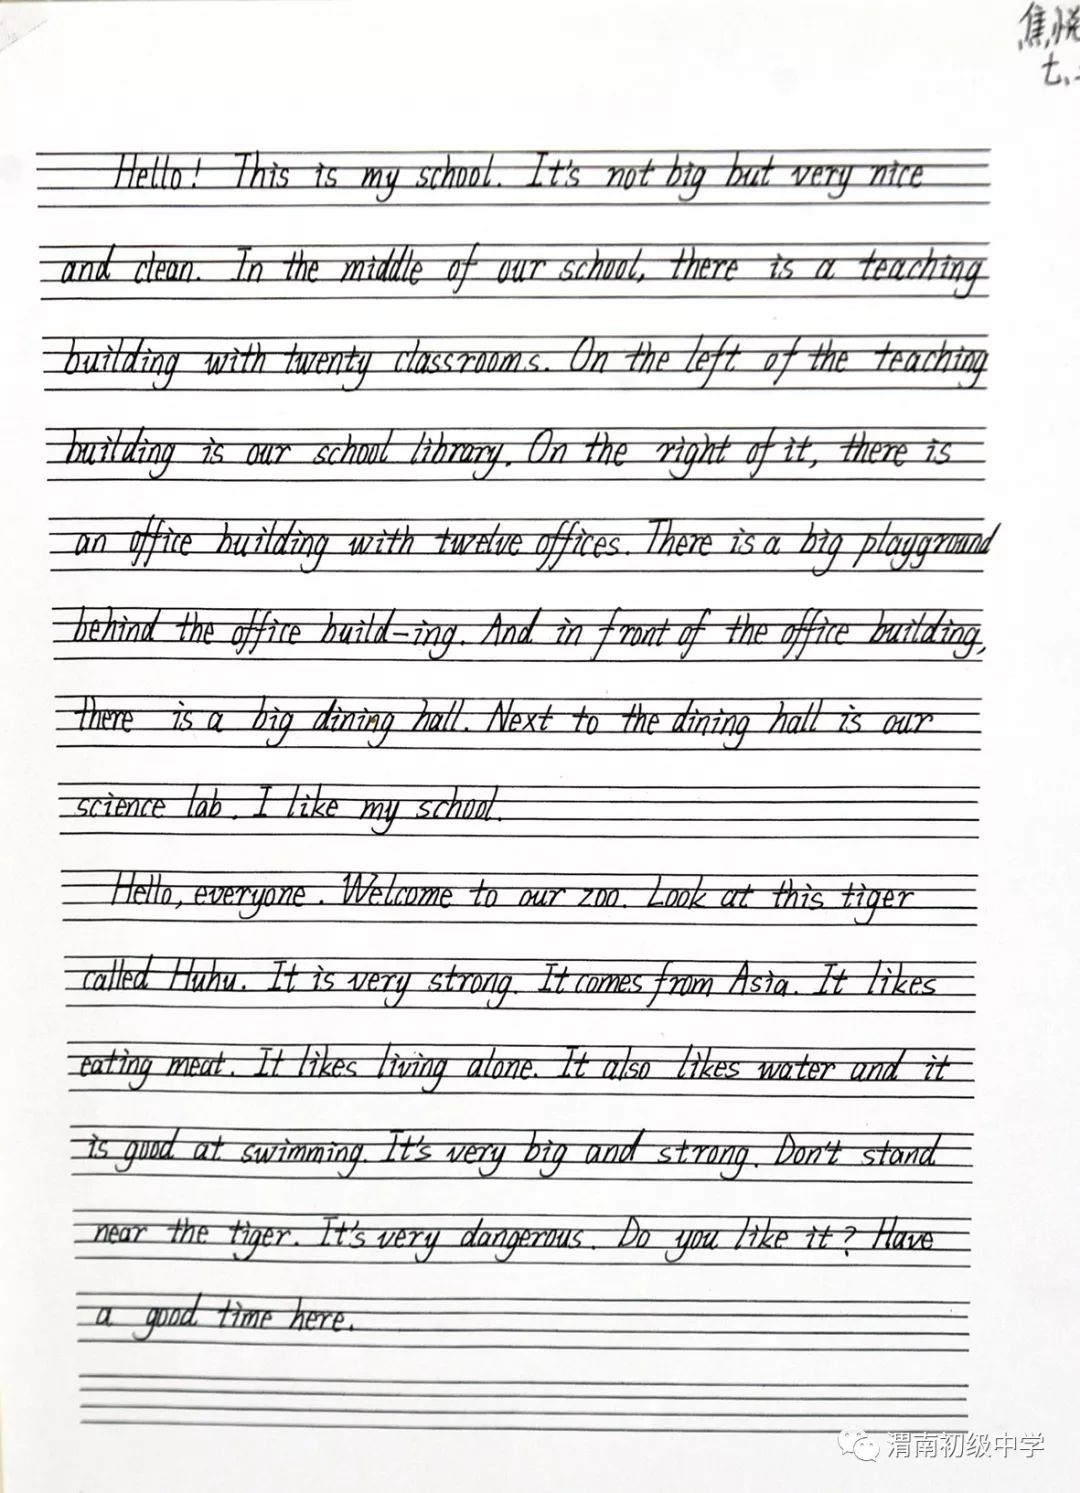 焦悦
七、
Hello! This is my school. It's not big but very nice
and clean. In the middle of our school, there is a teaching
building with twenty classrooms. On the left of the teaching
building is our school library. On the right of it, there is
an office building with twelve offices. There is a big playground
behind the office build-ing. And in front of the office building,
there is a big dining hall. Next to the dining hall is our
science lab. I like my school.
Hello, everyone. Welcome to our zoo. Look at this tiger
called Huhu. It is very strong. It comes from Asia. It likes
eating meat. It likes living alone. It also likes water and it
is good at swimming. It's very big and strong. Don't stand
near the tiger. It's very dangerous. Do you like it? Have
a good time here.
渭南初级中学